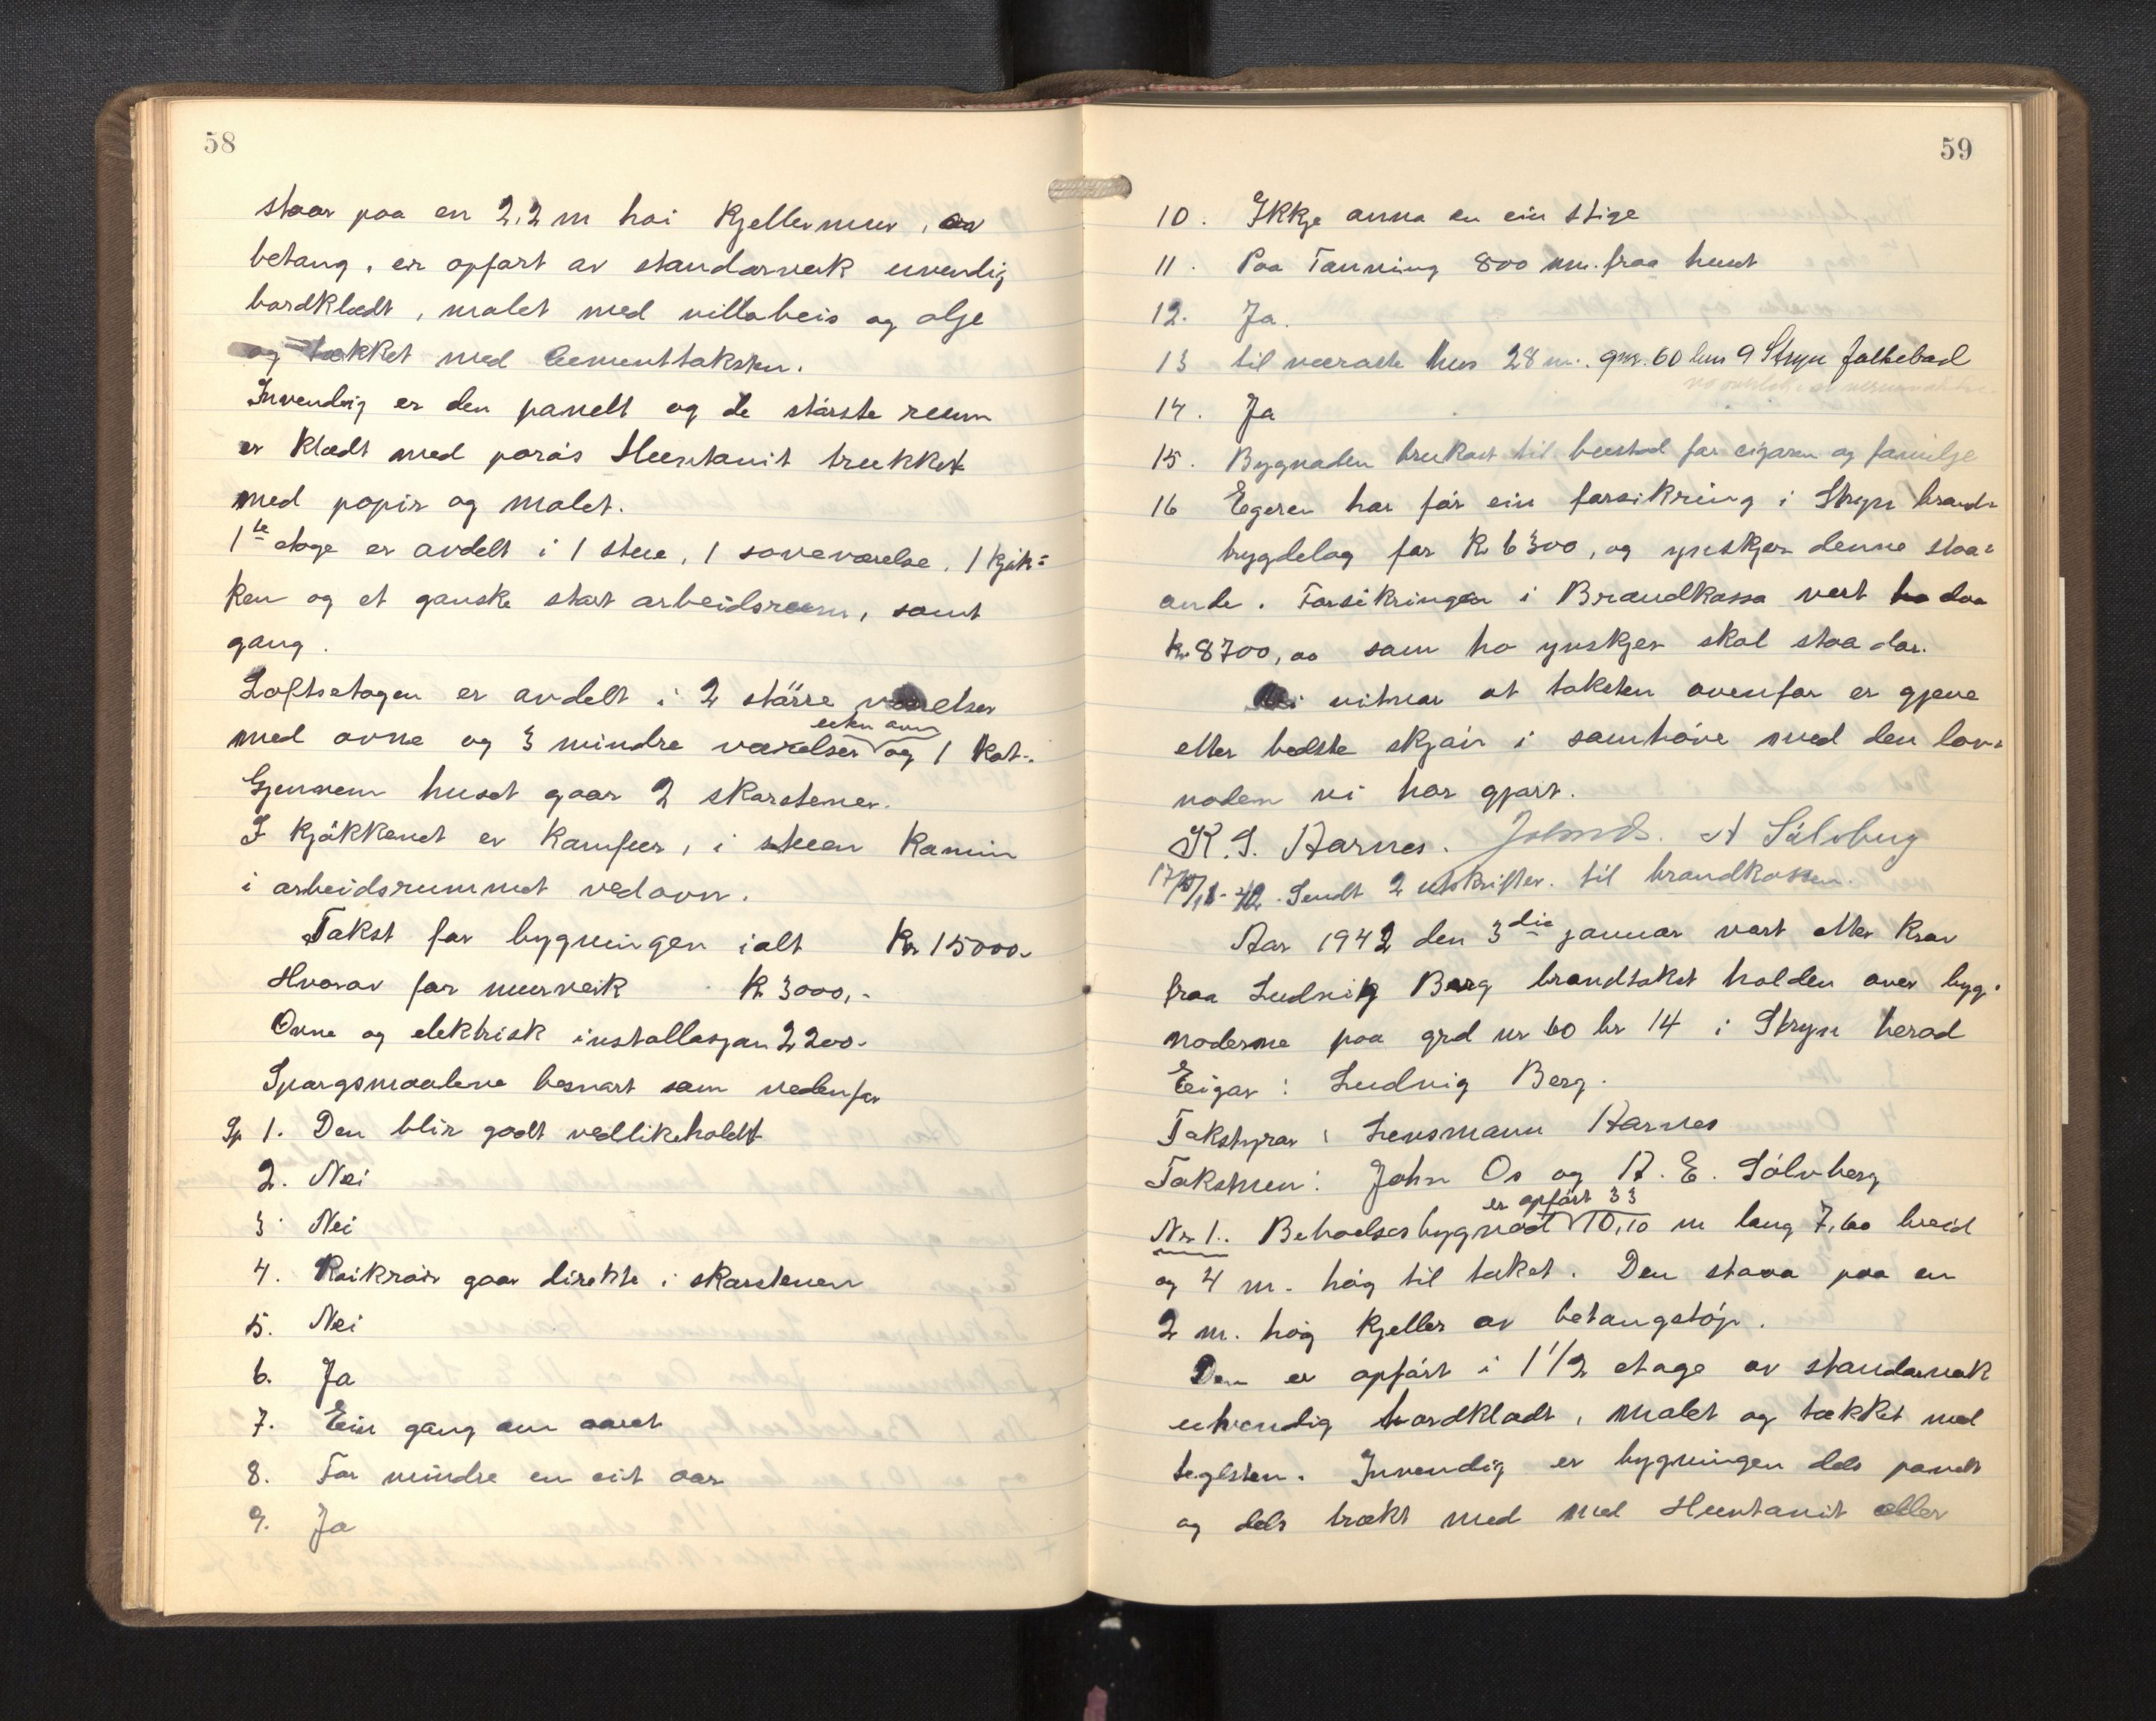 58
staar paa en 2,2 m høi Kjellermur, av
betong, er opført av standarverk utvendig
bordklædt, malet med villabeis og olje
og tækket med Cementtaksten.
Invendig er den panelt og de største reum
er klædt med porøs Huntonit trukket
med papir og malet.
1ste etage er avdelt i 1 stue, 1 soveværelse, 1 kjøk=
ken og et ganske stort arbeidsreum, samt
gang.
Loftsetagen er avdelt i 2 større værelser
med ovne og 3 mindre værelser uten ovn og 1 kot.
Gjennem huset gaar 2 skorstener.
I Kjøkkenet er Komfur, i stuen Kamin
i arbeidsrummet vedovn.
Takst for bygningen ialt Kr 15000.-
Hvorav for murverk Kr 3000,-
Ovne og elektrisk installasjon 2200.-
Spørgsmaalene besvart som nedenfor
Sp 1. Den blir godt vedlikeholdt
2. Nei
3. Nei
4. Røikrøir gaar direkte i skorstenen
5. Nei
6. Ja
7. Ein gang om aaret
8. For mindre en eit aar
9. Ja
59
10. Ikkje anna en ein stige
11. Paa Tonning 800 m. fraa huset
12. Ja.
13 til næraste hus 28 m. gnr. 60 bnr 9 Stryn folkebad
14. Ja
15. Bygnaden brukast til bustad for eigaren og familje
16 Egeren har før ein forsikring i Stryn brand=
bygdelag for Kr 6300, og ynskjer denne staa=
ande. Forsikringen i Brandkassa vert daa
kr. 8700,00 som ho ynskjer skal staa der.
Vi vitnar at taksten ovenfor er gjeve
etter bedste skjøn i samhøve med den lov=
naden vi har gjort.
K. S. Aarnes. John Os. A Sølvberg
17/11-42. Sendt 2 utskrifter. til brandkassen.
Aar 1942 den 3die januar vart etter krav
fraa Ludvig Berg brandtakst holden over byg-
nadene paa grd nr 60 br 14 i Stryn herad
Eigar: Ludvig Berg.
Takstyrar: Lensmann Aarnes
Taksmen: John Os og A. E. Sølvberg
Nr 1. Beboelsesbygnad er opført 33 10,10 m lang 7,60 breid
og 4 m. høg til taket. Den staaa paa en
2 m. høg Kjeller av betongstøp.
Den er opført i 1 1/2 etage av standarverk
utvendig bordklædt, malet og tækket med
teglsten. Invendig er bygningen dels panelt
og dels trækt med med Huntonit eller